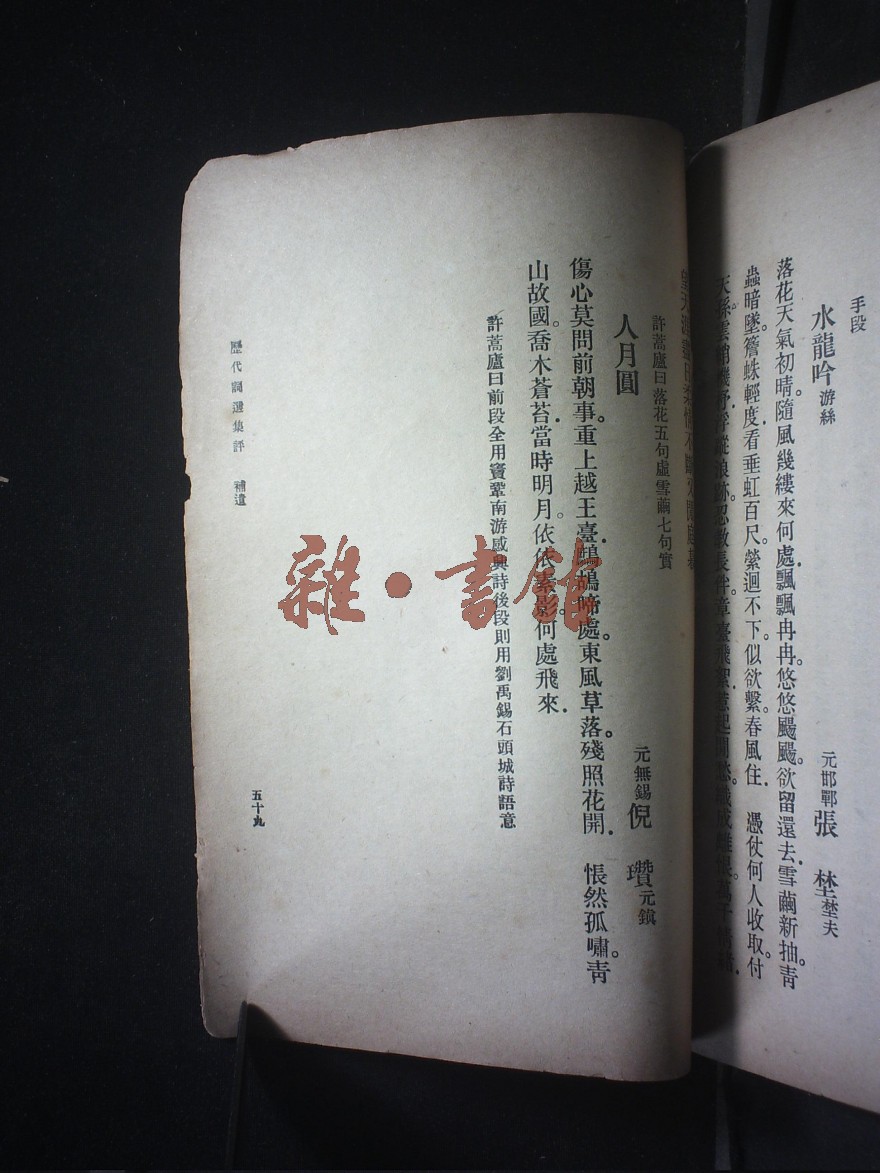 手段
水龍吟 游絲 元邯鄲 張埜 埜夫
落花天氣初晴。隨風幾縷來何處。飄飄冉冉。悠悠颺颺。欲留還去。雪繭新抽。青
蟲暗墜。簷蛛輕度。看垂虹百尺。縈迴不下。似欲繫春風住。 憑仗何人收取。付
天孫雲
許蒿廬曰落花五句虛雪繭七句實
人月圓 元無錫 倪瓚 元鎮
傷心莫問前朝事。重上越王臺。鷓鴣啼處。東風草落。殘照花開。 悵然孤嘯。青
山故國。喬木蒼苔。當時明月。依依素影。何處飛來。
許蒿廬曰前段全用竇鞏南游感興詩後段則用劉禹錫石頭城詩語意
歷代詞選集評 補遺
五十九
雜·書館